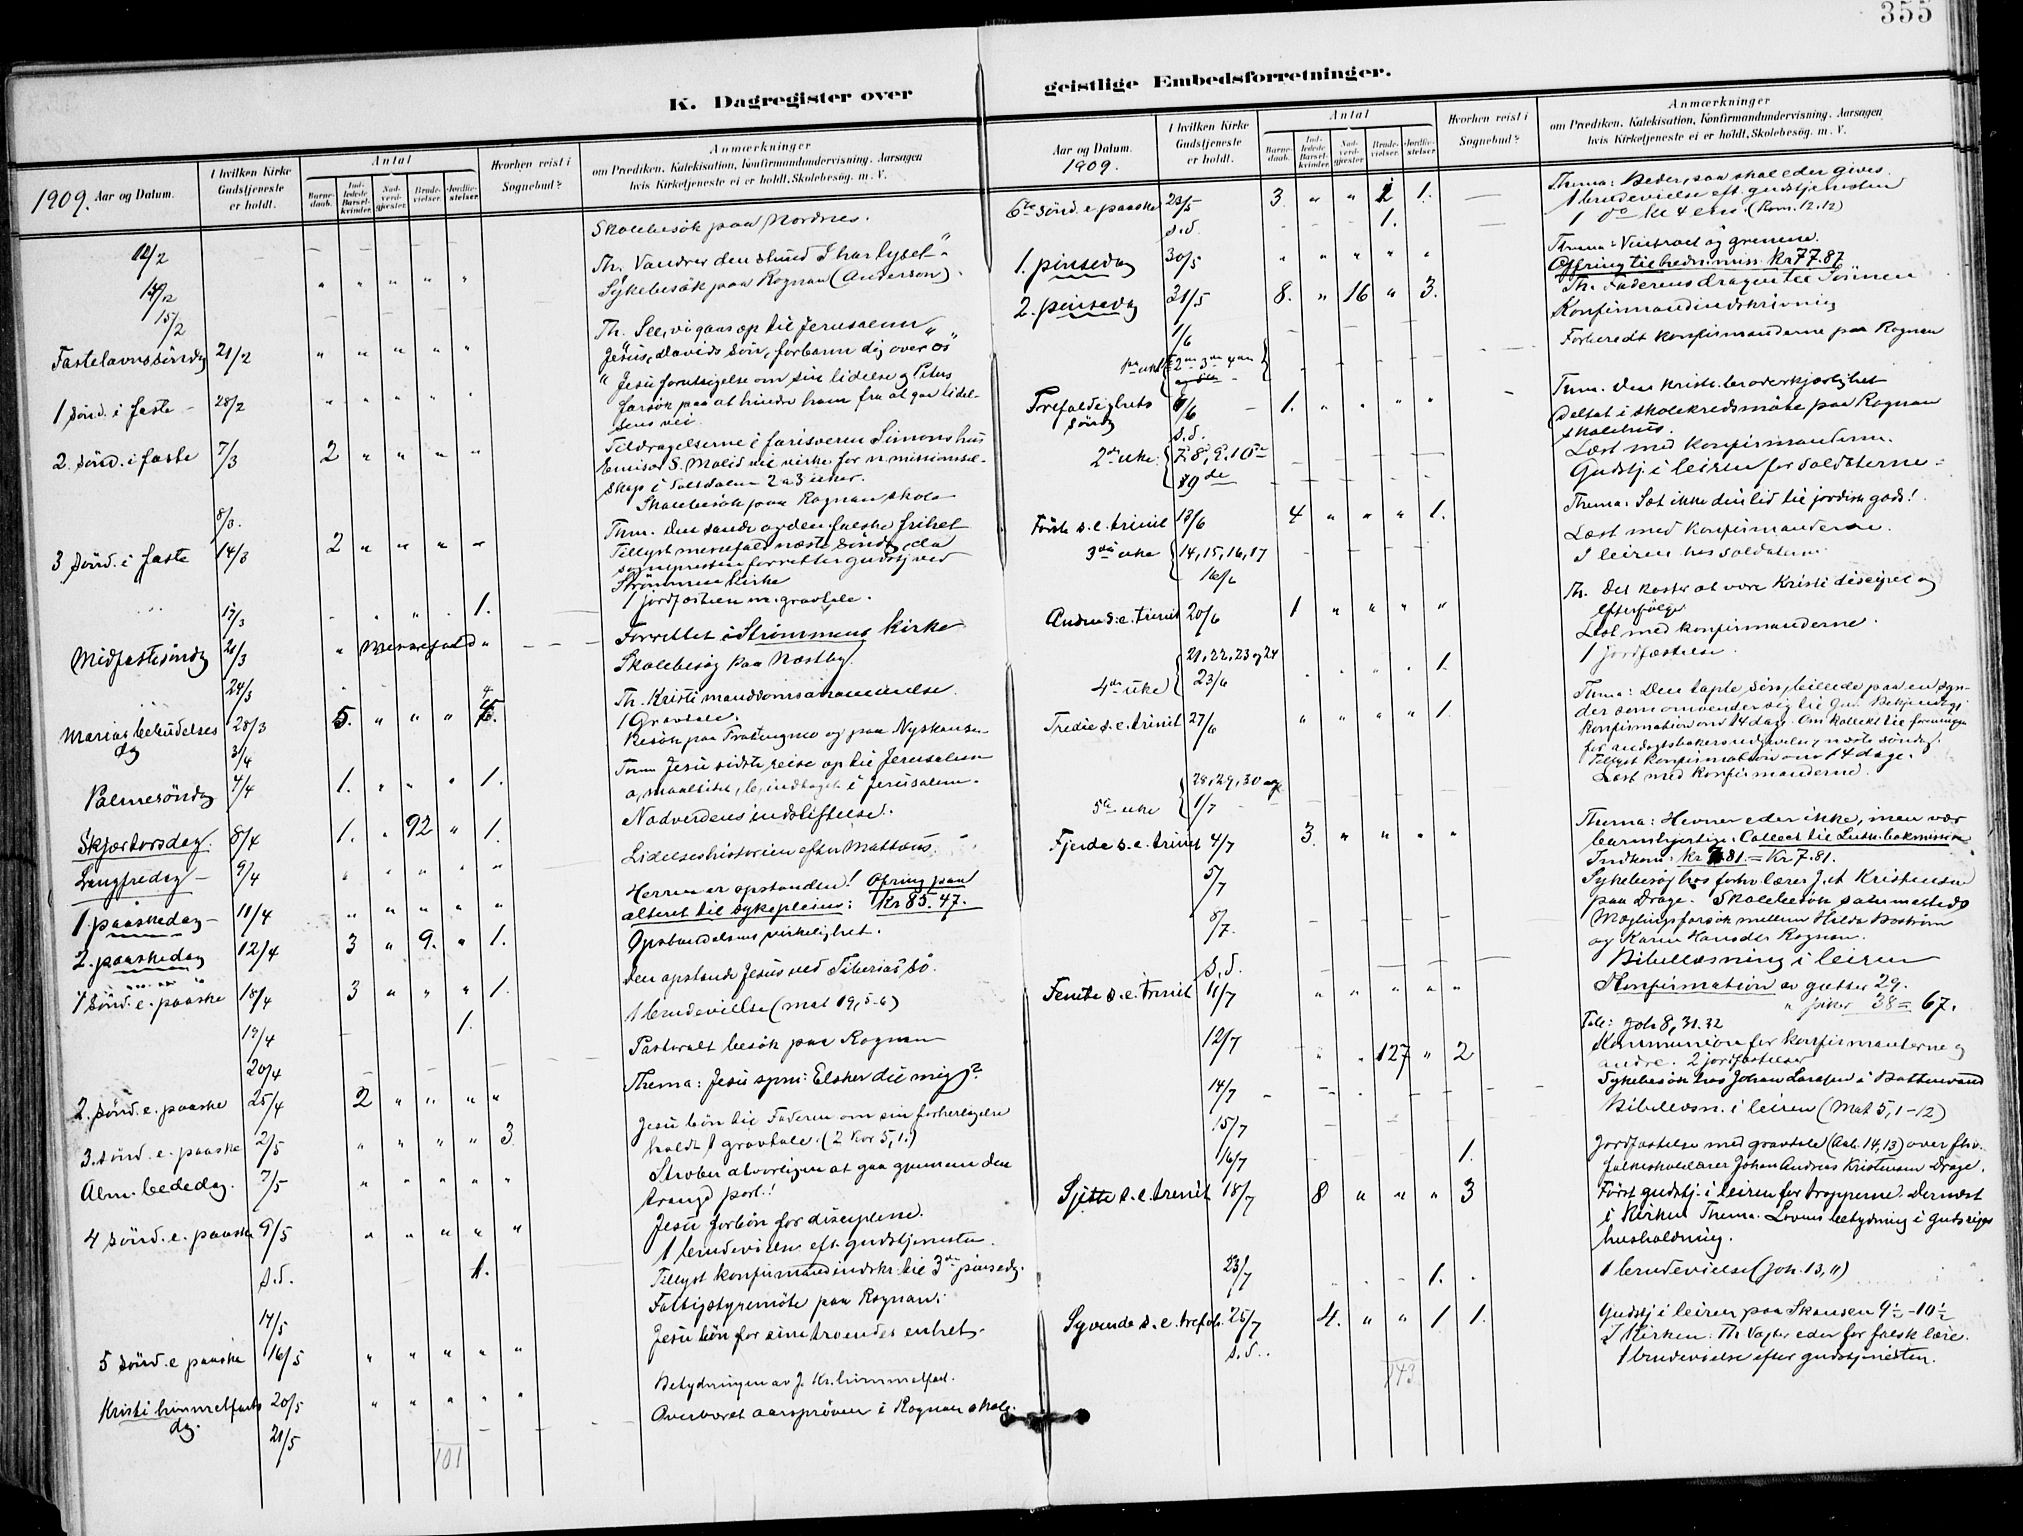 355
K. Dagregister over
geistlige Embedsforretninger.
1909. Aar og Datum.
I hvilken Kirke Gudstjeneste er holdt.
Antal
Barne-daab.
Ind-ledede Barsel-kvinder.
Nad-verd-gjester.
Brude-vielser.
Jordfæ-stelser.
Hvorhen reist i Sognebud?
Anmærkninger
om Prædiken, Katekisation, Konfirmandundervisning, Aarsagen
hvis Kirketjeneste ei er holdt, Skolebesøg. m. V.
12/2 Skolebesök paa Nordnes.
14/2 " " " " " Th. Vandrer den stund I har lyset "
15/2 Sykebesök paa Rognan (Anderson).
Fastelavnssöndag 21/2 " " " " " Th. See, vi gaar op til Jerusalem "
Jesus, Davids Sön, forbarm dig over os "
1 sönd. i faste 28/2 " " " " " " Jesu forutsigelse om sin lidelse og Peters
forsök paa at hindre ham fra at gaa lidel-
sens vei.
2. sönd. i faste 7/3 2 " " " " Tildragelserne i fariseeren Simons hus
Emisær S. Molid vil virke for n. missionssel-
skap i Saltdalen 2 a 3 uker.
8/3. Skolebesök paa Rognan skole
3 sönd. i faste 14/3 2 " " " " Thm. Den sande og den falske frihet
Tillyst messefald næste söndag, da
sognepresten forretter gudstj ved
Strömmen kirke
17/3 1. 1 jordfæstelse m. gravtale.
Midfastesöndag 21/3 " Messefald " Forrettet i Strömmens kirke
24/3 Skolebesög paa Næstby.
Marias bebudelses dag 28/3 5. " " " Th. Kristi manddomsannammelse.
1 Gravtale.
3/4 Besök paa Trætnesmo og paa Nyskansen
Palmesöndag 4/4 1. " " " 1. Tema Jesu sidste reise op til Jerusalem
a, maaltidet, b, indtoget i Jerusalem.
Skjærtorsdag. 8/4 1. " 92 " 1. Nadverdens indstiftelse.
Langfredag 9/4 " " " " " Lidelseshistorien efter Mattæus.
1. paaskedag 11/4 " " " " " Herren er opstanden! Ofring paa
alteret til sykepleien: Kr 85.47.
2. paaskedag 12/4 3 " 9. " 1. Opstandelsens virkelighet.
1 sönd. e. paaske 18/4 3 " " " 1. Den opstandne Jesus ved Tiberias sö.
19/4 1. 1 brudevielse (mat 19, 5-6)
20/4 Pastoralt besök paa Rognan
2. sönd. e. paaske 25/4 2 " " " " Thema: Jesu spm: Elsker du mig?
3. sönd. e. paaske 2/5 " " " " 3 Jesu bön til Faderen om sin forherligelse
holdt 1 gravtale. (2 Kor 5, 1.)
Alm. bededag. 7/5 " " " " " Stræber alvorligen at gaa gjennem den
trange port!
4 sönd. e. paaske 9/5 " " " " " Jesu forbön for disciplene.
s.d. 1. 1 brudevielse eft. gudstjenesten.
Tillyst konfirmandindskr. til 3de pinsedg.
14/5 Fattigstyremöte paa Rognan.
5 sönd. e paaske 16/5 " " " " " Jesu bön for sine troendes enhet.
Kristi himmelfarts dg. 20/5 " " " " " Betydningen av J. Kr. himmelfart.
21/5 Overværet aarsprøven i Rognan skole.
101
Aar og Datum. 1909.
I hvilken Kirke Gudstjeneste er holdt.
Antal
Barne-daab.
Ind-ledede Barsel-kvinder.
Nad-verd-gjester.
Brude-vielser.
Jordfæ-stelser.
Hvorhen reist i Sognebud?
Anmærkninger
om Prædiken, Katekisation, Konfirmandundervisning, Aarsagen
hvis Kirketjeneste ei er holdt, Skolebesøg. m. V.
6te sönd. e paaske 23/5 3 " " 1 1. Thema: Beder, saa skal eder gives.
1 brudevielse eft. gudstjenesten
s.d. 1. 1 do kl 4 em. (Rom. 12.12)
1. pinsedag 30/5 " " " " " Thema: Vintræet og grenene.
Offring til hedn. mis. Kr 77.87
2. pinsedag 31/5 8. " 16 " 3. Th. Faderens dragen til Sönnen
1/6 Konfirmandindskrivning
1ste uke 2den 3die 4de Forberedt konfirmanderne paa Rognan
Trefoldigheds söndag 6/6 1. " " " " Thm. Den kristl. broderkjærlighet
s.d. Deltat i skolekredsmöte paa Rognan
skolehus.
2den uke 7. 8. 9. 10de Læst med konfirmanderne.
s 9de Gudstj i leiren for soldaterne
Förste s. e. trinit 13/6 4 " " " 1. Thema: Sæt ikke din lid til jordisk gods!
3die uke 14, 15, 16, 17 Læst med konfirmanderne.
16/6 I leiren hos soldaterne
Anden s. e. trinit 20/6 1 " " " " Th. Det koster at være Kristi discipel og
efterfölge
21, 22, 23 og 24 Læst med konfirmanderne.
4de uke 23/6 1. 1 jordfæstelse
Tredie s. e. trinit 27/6 " " " " 1. Thema: Den tapte sön, billede paa en syn-
der som omvender sig til Gud. Bekjendtgj.
konfirmation om 14 dage. Om kollekt til foreningen
for andagtsbökers utgivelse næste söndag.
Tillyst konfirmation om 14 dage.
28, 29, 30 og Læst med konfirmanderne.
5te uke 1/7
Fjerde s. e. trinit 4/7 3. " " " " Thema: Hevner eder ikke, men vær
barmhjertige. Collect til Luth. bokmission
Indkom: Kr 7.81. = Kr 7.81.
5/7 Sykebesög hos forhv. lærer J. A Kristensen
paa Drage. Skolebesök sammesteds
8/7. Mæglingsforsök mellem Hilda Boström
og Karen Hansdtr Rognan.
s.d. Bibellæsning i leiren
Femte s. e. trinit 11/7 " " " " " Konfirmation av gutter 29.
" piker 38 = 67.
Tale: Joh 8, 31. 32
12/7 " " 127 " 2 Kommunion for konfirmanterne og
andre. 2 jordfæstelser
14/7 Sykebesök hos Johan Larsen i Botnvand
15/7 Bibellæsn. i leiren (Mat 5, 1-12)
16/7 1. Jordfæstelse med gravtale (Aab. 14, 13) over fhv.
folkeskolelærer Johan Andreas Kristensen Drage.
Sjette s. e. trinit 18/7 8 " " " 3 Först gudstj. i leiren for tropperne. Dernæst
i Kirken Thema: Lovens betydning i Guds riges
husholdning.
23/7 1. 1 brudevielse (Joh. 13, 11)
Syvende s. e. trefol. 25/7 4. " " 1 1. Gudstj i leiren paa Skansen 9½-10½
I Kirken: Th. Vogter eder for falsk lære.
s.d. 1 brudevielse efter gudstjenesten.
143